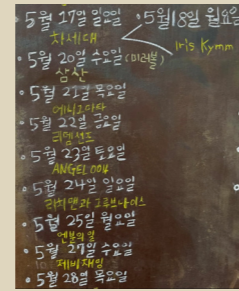 • 5월 17일 일요일 • 5월 18일 월요일
차세대 Iris Kymm
• 5월 20일 수요일 (미러볼)
삼산
• 5월 21일 목요일
에니고다타
• 5월 22일 금요일
리뎀션드
• 5월 23일 토요일
ANGEL 004
• 5월 24일 일요일
리치맨과 그루브나이스
• 5월 25일 월요일
• 5월 27일 수요일
제비재림
• 5월 28일 목요일